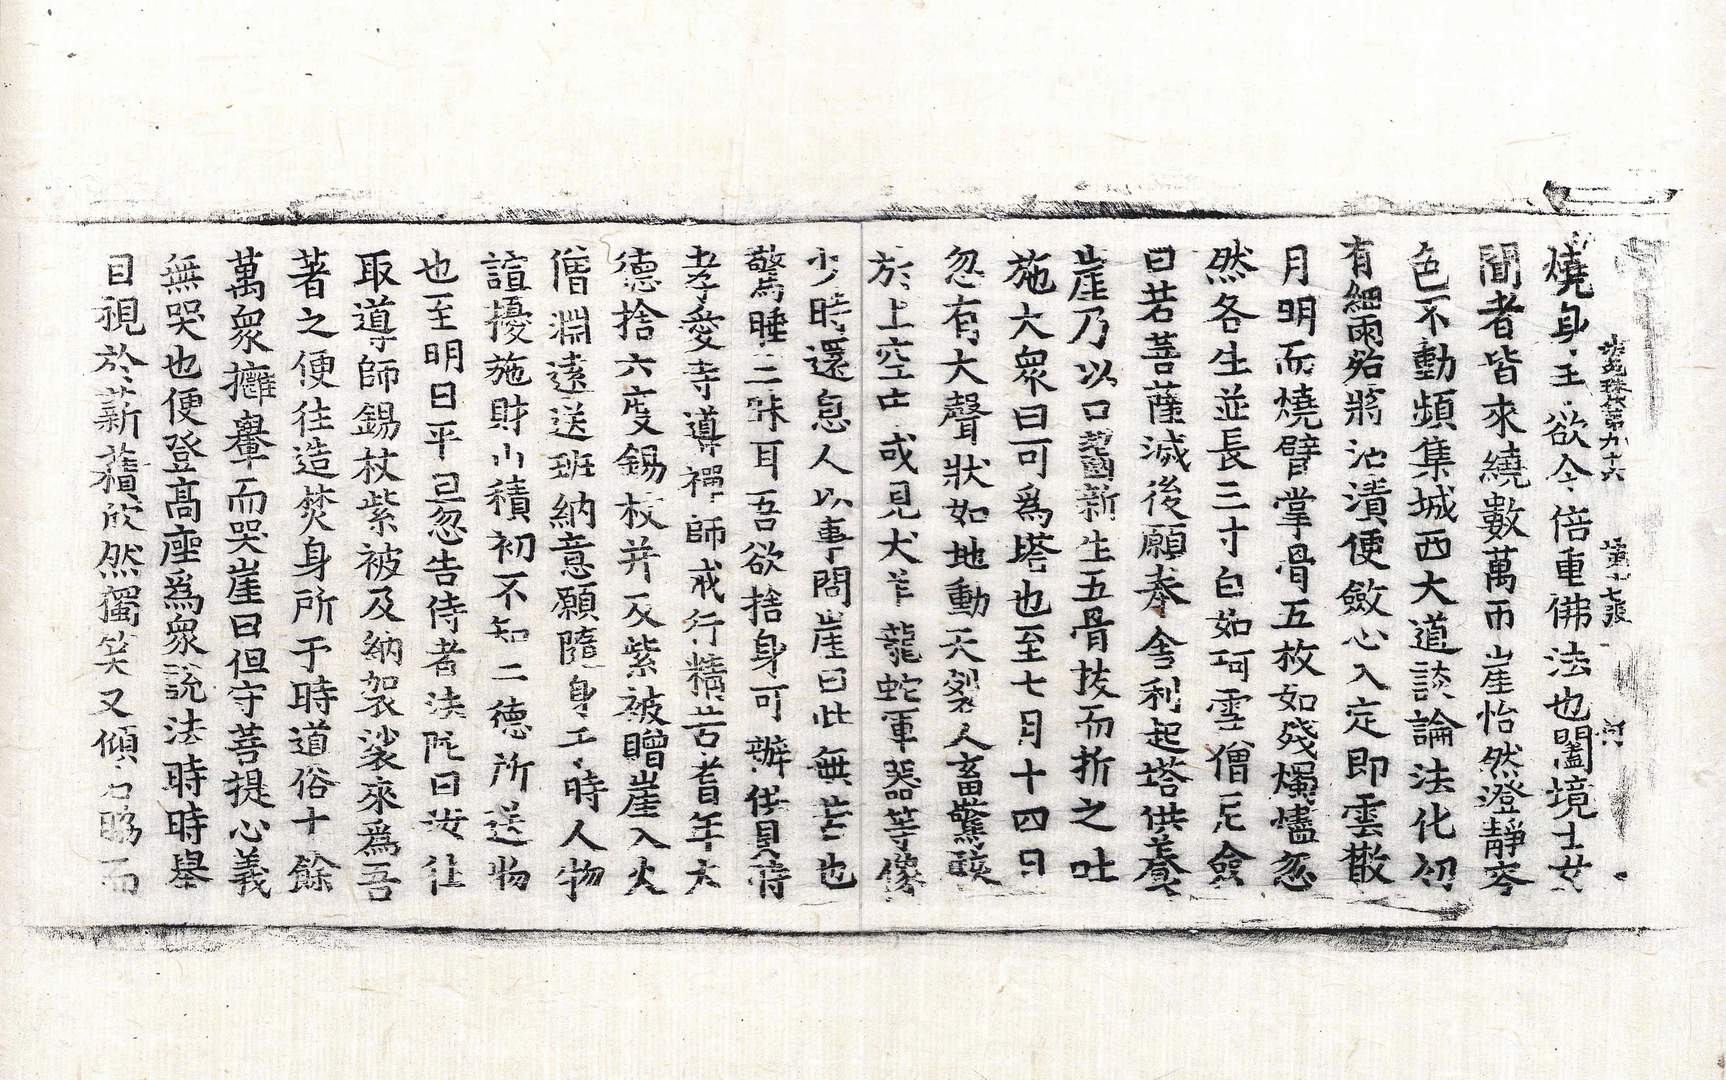 法苑珠林第九十六 第十七張 河
燒身主欲令倍重佛法也闔境士女
聞者皆來繞數萬帀崖怡然澄靜容
色不動頻集城西大道談論法化初
有細雨殆將沾漬便斂心入定即雲散
月明而燒臂掌骨五枚如殘燭燼忽
然各生並長三寸白如珂雪僧尼僉
曰若菩薩滅後願奉舍利起塔供養
崖乃以口嚙新生五骨拔而折之吐
施大衆曰可爲塔也至七月十四日
忽有大聲狀如地動天裂人畜驚駭
於上空中或見犬羊龍蛇軍器等像
少時還息人以事問崖曰此無苦也
驚睡三昧耳吾欲捨身可辦供具時
孝愛寺導禪師戒行精苦耆年大
德捨六度錫杖并及紫被贈崖入火
僧淵遠送班納意願隨身于時人物
諠擾施財山積初不知二德所送物
也至明日平旦忽告侍者法陁曰汝往
取導師錫杖紫被及納袈裟來爲吾
著之便往造焚身所于時道俗十餘
萬衆擁轝而哭崖曰但守菩提心義
無哭也便登高座爲衆說法時時舉
目視於薪𧂐欣然獨笑又傾右脇而